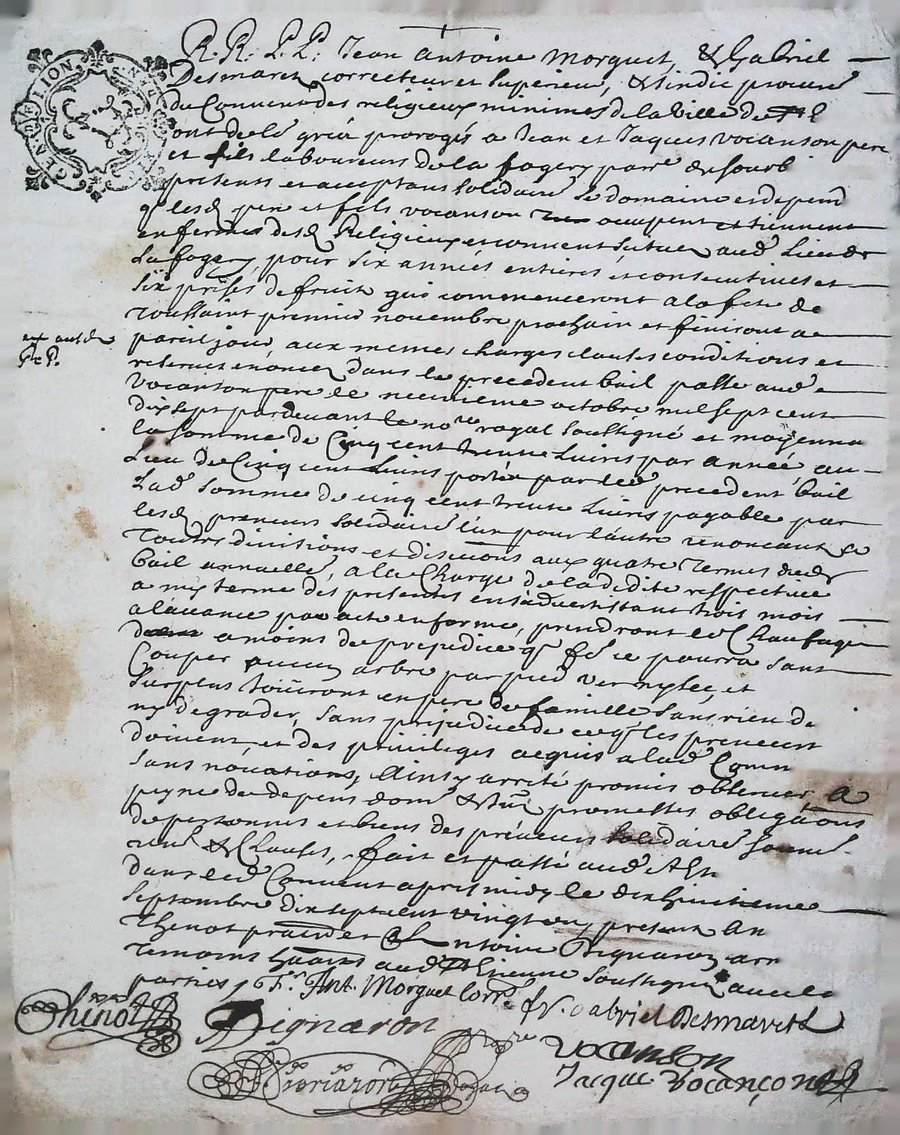 R. R. P. P. Jean antoine Morguet, & Gabriel
Desmaret correcteur et superieur, & sindic procure
du Convent des religieux minimes de la ville de St E
ont de le gré prorogés a Jean et Jaques vocanson pere
et fils laboureurs de la fogery parr
presents et acceptans solidaire le domaine et depend
q lesd pere et fils vocanson occupent et tiennent
en ferme desd Religieux et convent situé aud Lieu de
La fogery pour six années entieres et consecutives et
six prises de fruit qui commenceront a la fete de
toussaint premier novembre prochain et finiront a
pareil jour, aux memes charges clauses conditions et
reserves enoncez dans le precedent bail passé aud
vocanson pere le neufvieme octobre mil sept cent
dix sept pardevant le nore royal soussigné et moyenna
la somme de Cinq cent trente Livres par année, au
Lieu de Cinq cent Livres portée par led precedent bail
Lad somme de cinq cent trente Livres payable par
lesd preneurs solidaire l'un pour l'autre renonceant
toutes divisions et discutions aux quatre termes dud
bail annuelle, a la Charge de la dedite respective
a my terme des presentes en s'advertissant trois mois
a l'avance par acte en forme, prendront led Chaufage
a moins de prejudice q fe ce pourra sans
Couper aucun arbre par pied ny et
surplus Joüiront en pere de famille sans rien de
ny degrader, sans prejudice de ce q les preneurs
doivent, et des privileges acquis a lad Comm
sans novations, Ainsy arreté promis observer a
peyne de depens dom & promettes obligaons
de personnes et biens des preneurs solidaire soum
ren & Clauses, fait et passé aud St Et
dans led Convent apres midy le dix huitieme
septembre dix sept cent vingt presents An
Thenot et Antoine Pignaron
temoins aud St Etienne soussignez avec les
parties
ex aut de
P.R.P.
fr. Ant. Morguet Corr.
fr. Gabriel Desmareth
Thenot
Pignaron
vocanson
Jaque Vocançon